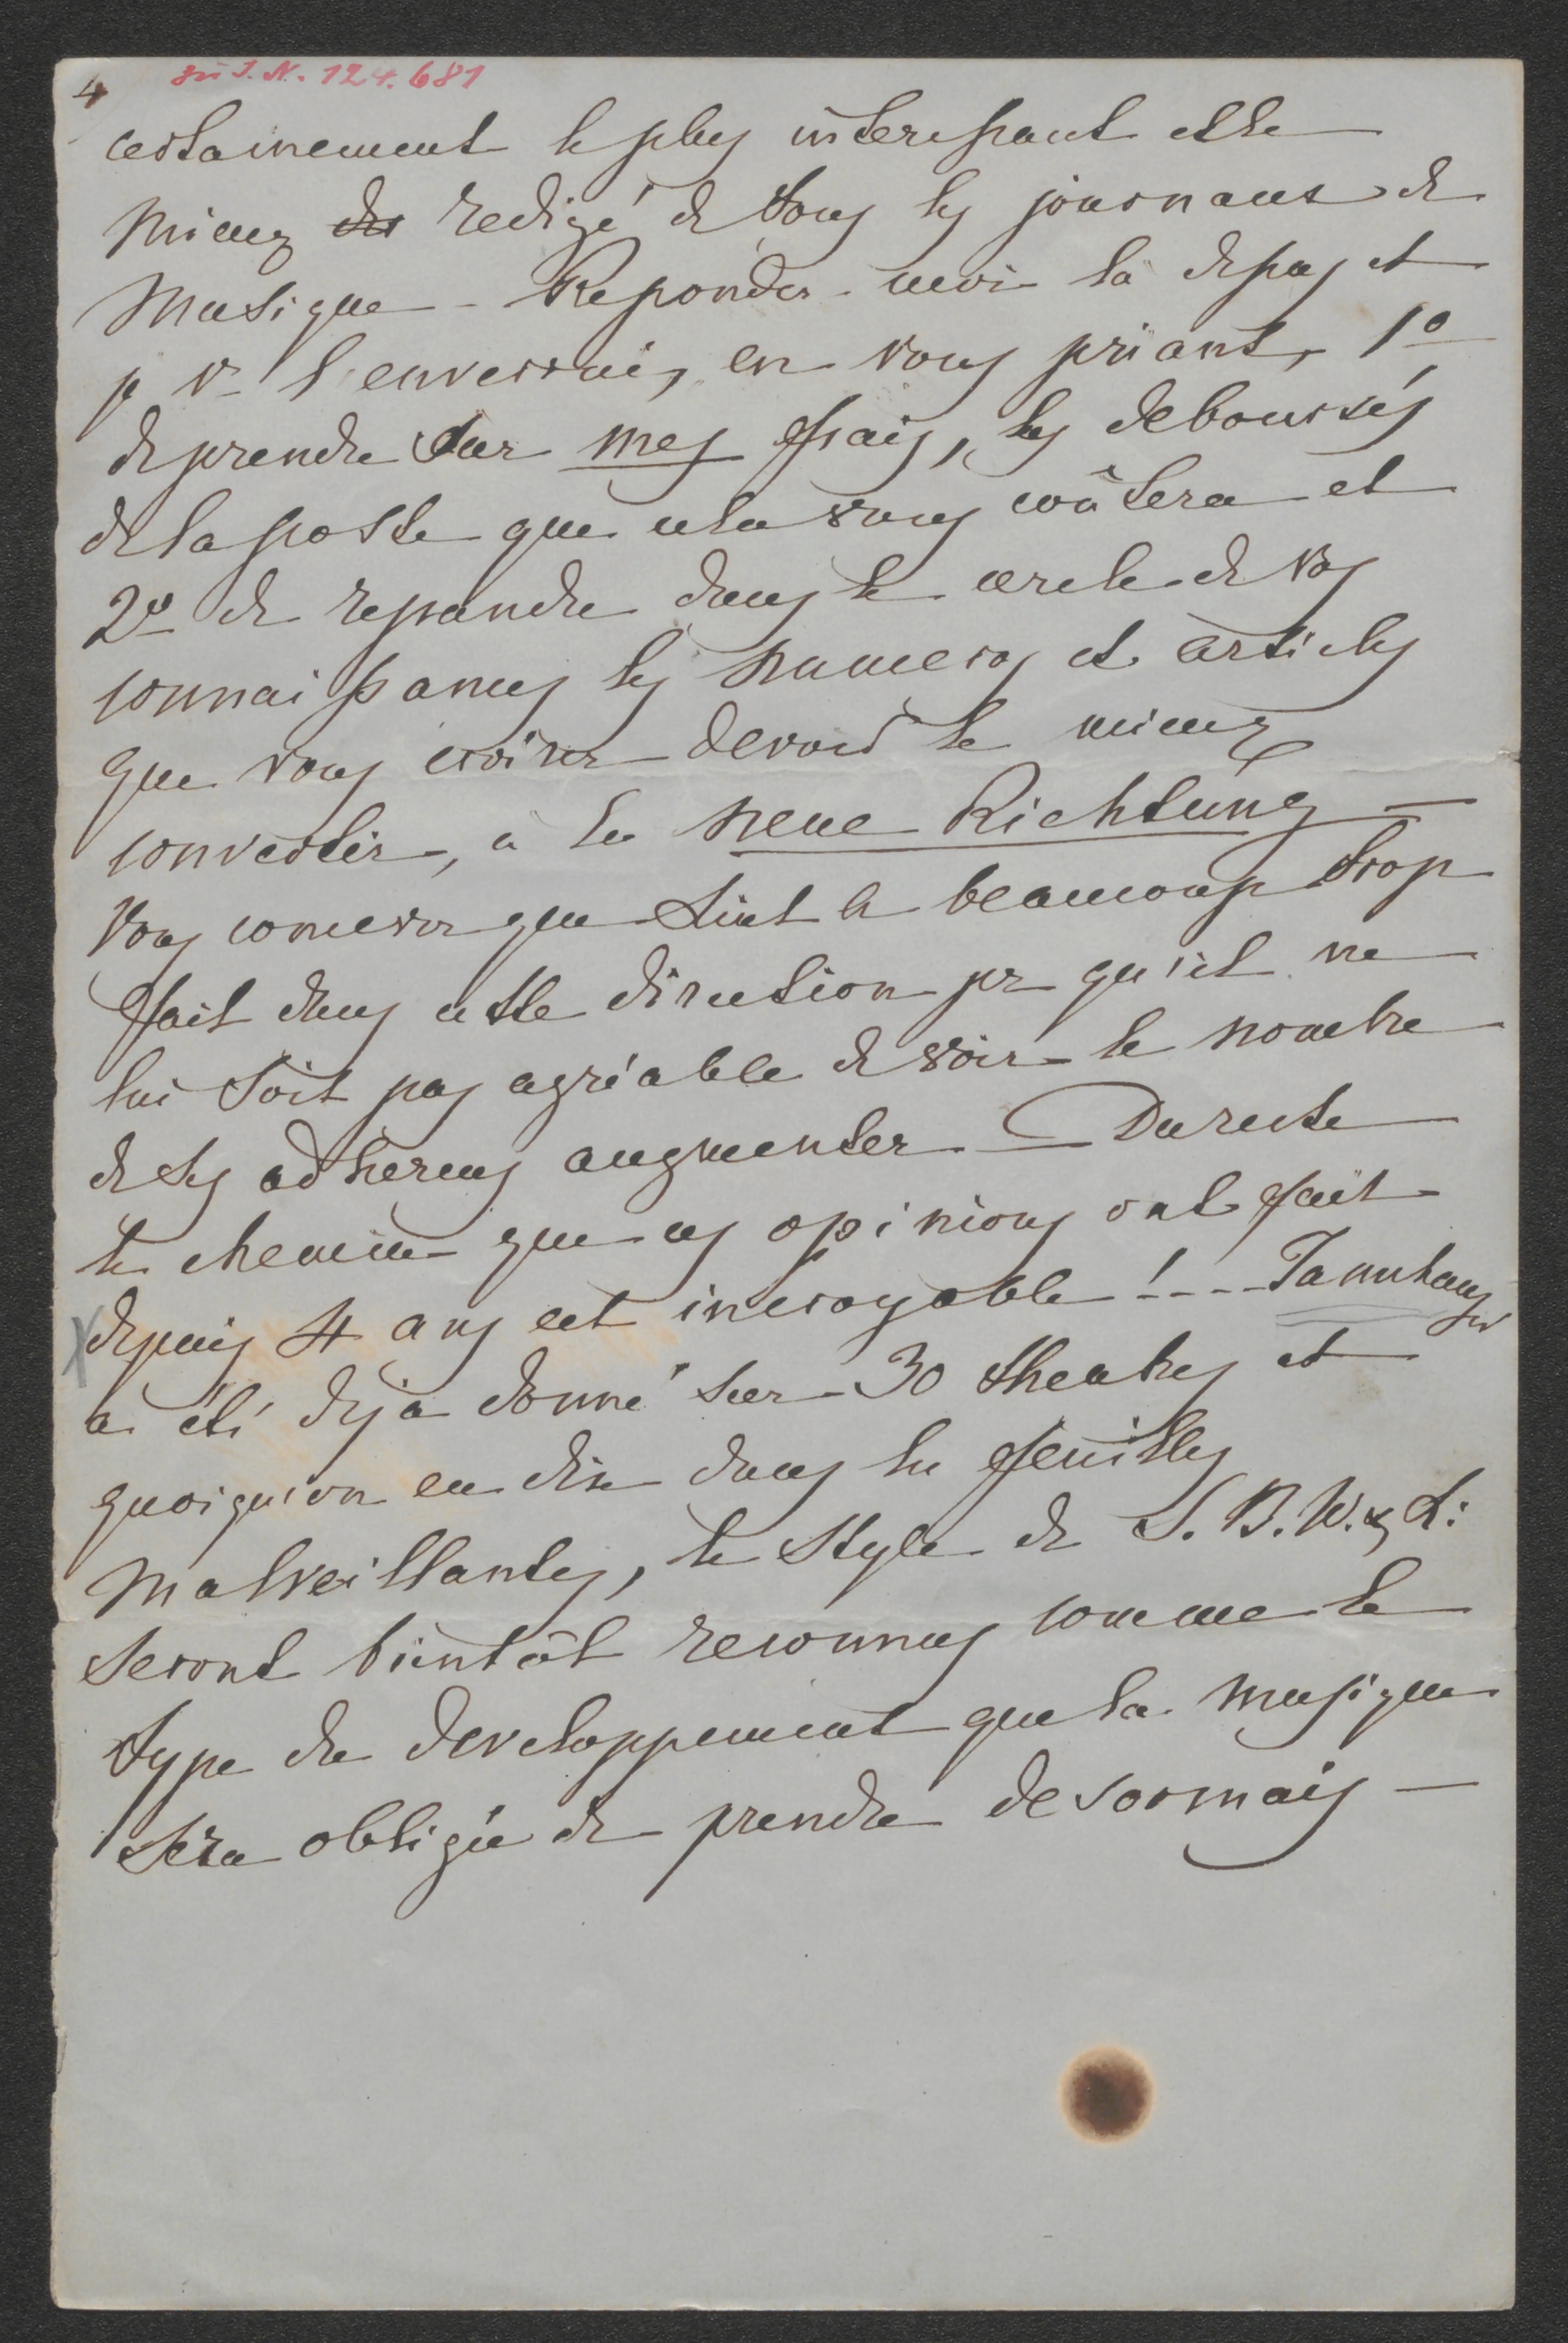 4
zu I. N. 124.681
certainement le plus interessant et le
mieux des redigé de tous les journaux de
Musique – Reponder – moi là dessus et
je vs l'enverrai, en vous priant, 1º
de prendre sur mes frais, les deboursés
de la poste que cela vous coûtera et
2º de repandre dans le cercle de vos
connaissances les numeros et articles
que vous croirez devoir le mieux
convertir, à la neue Richtung –
Vous concevez que Liszt a beaucoup trop
fait dans cette direction pr qu'il ne
lui soit pas agréable de voir le nombre
de ses adherens augmenter – Du reste
le chemin que ces opinions ont fait
depuis 4 ans est incroyable! - - - Tannhauser
a été déjà donné sur 30 theatres et
quoiqu'on en dise dans les feuilles
malveillantes, le style de S. B. W. & L:
seront bientôt reconnus comme le
type du developpement que la musique
sera obligée de prendre desormais –